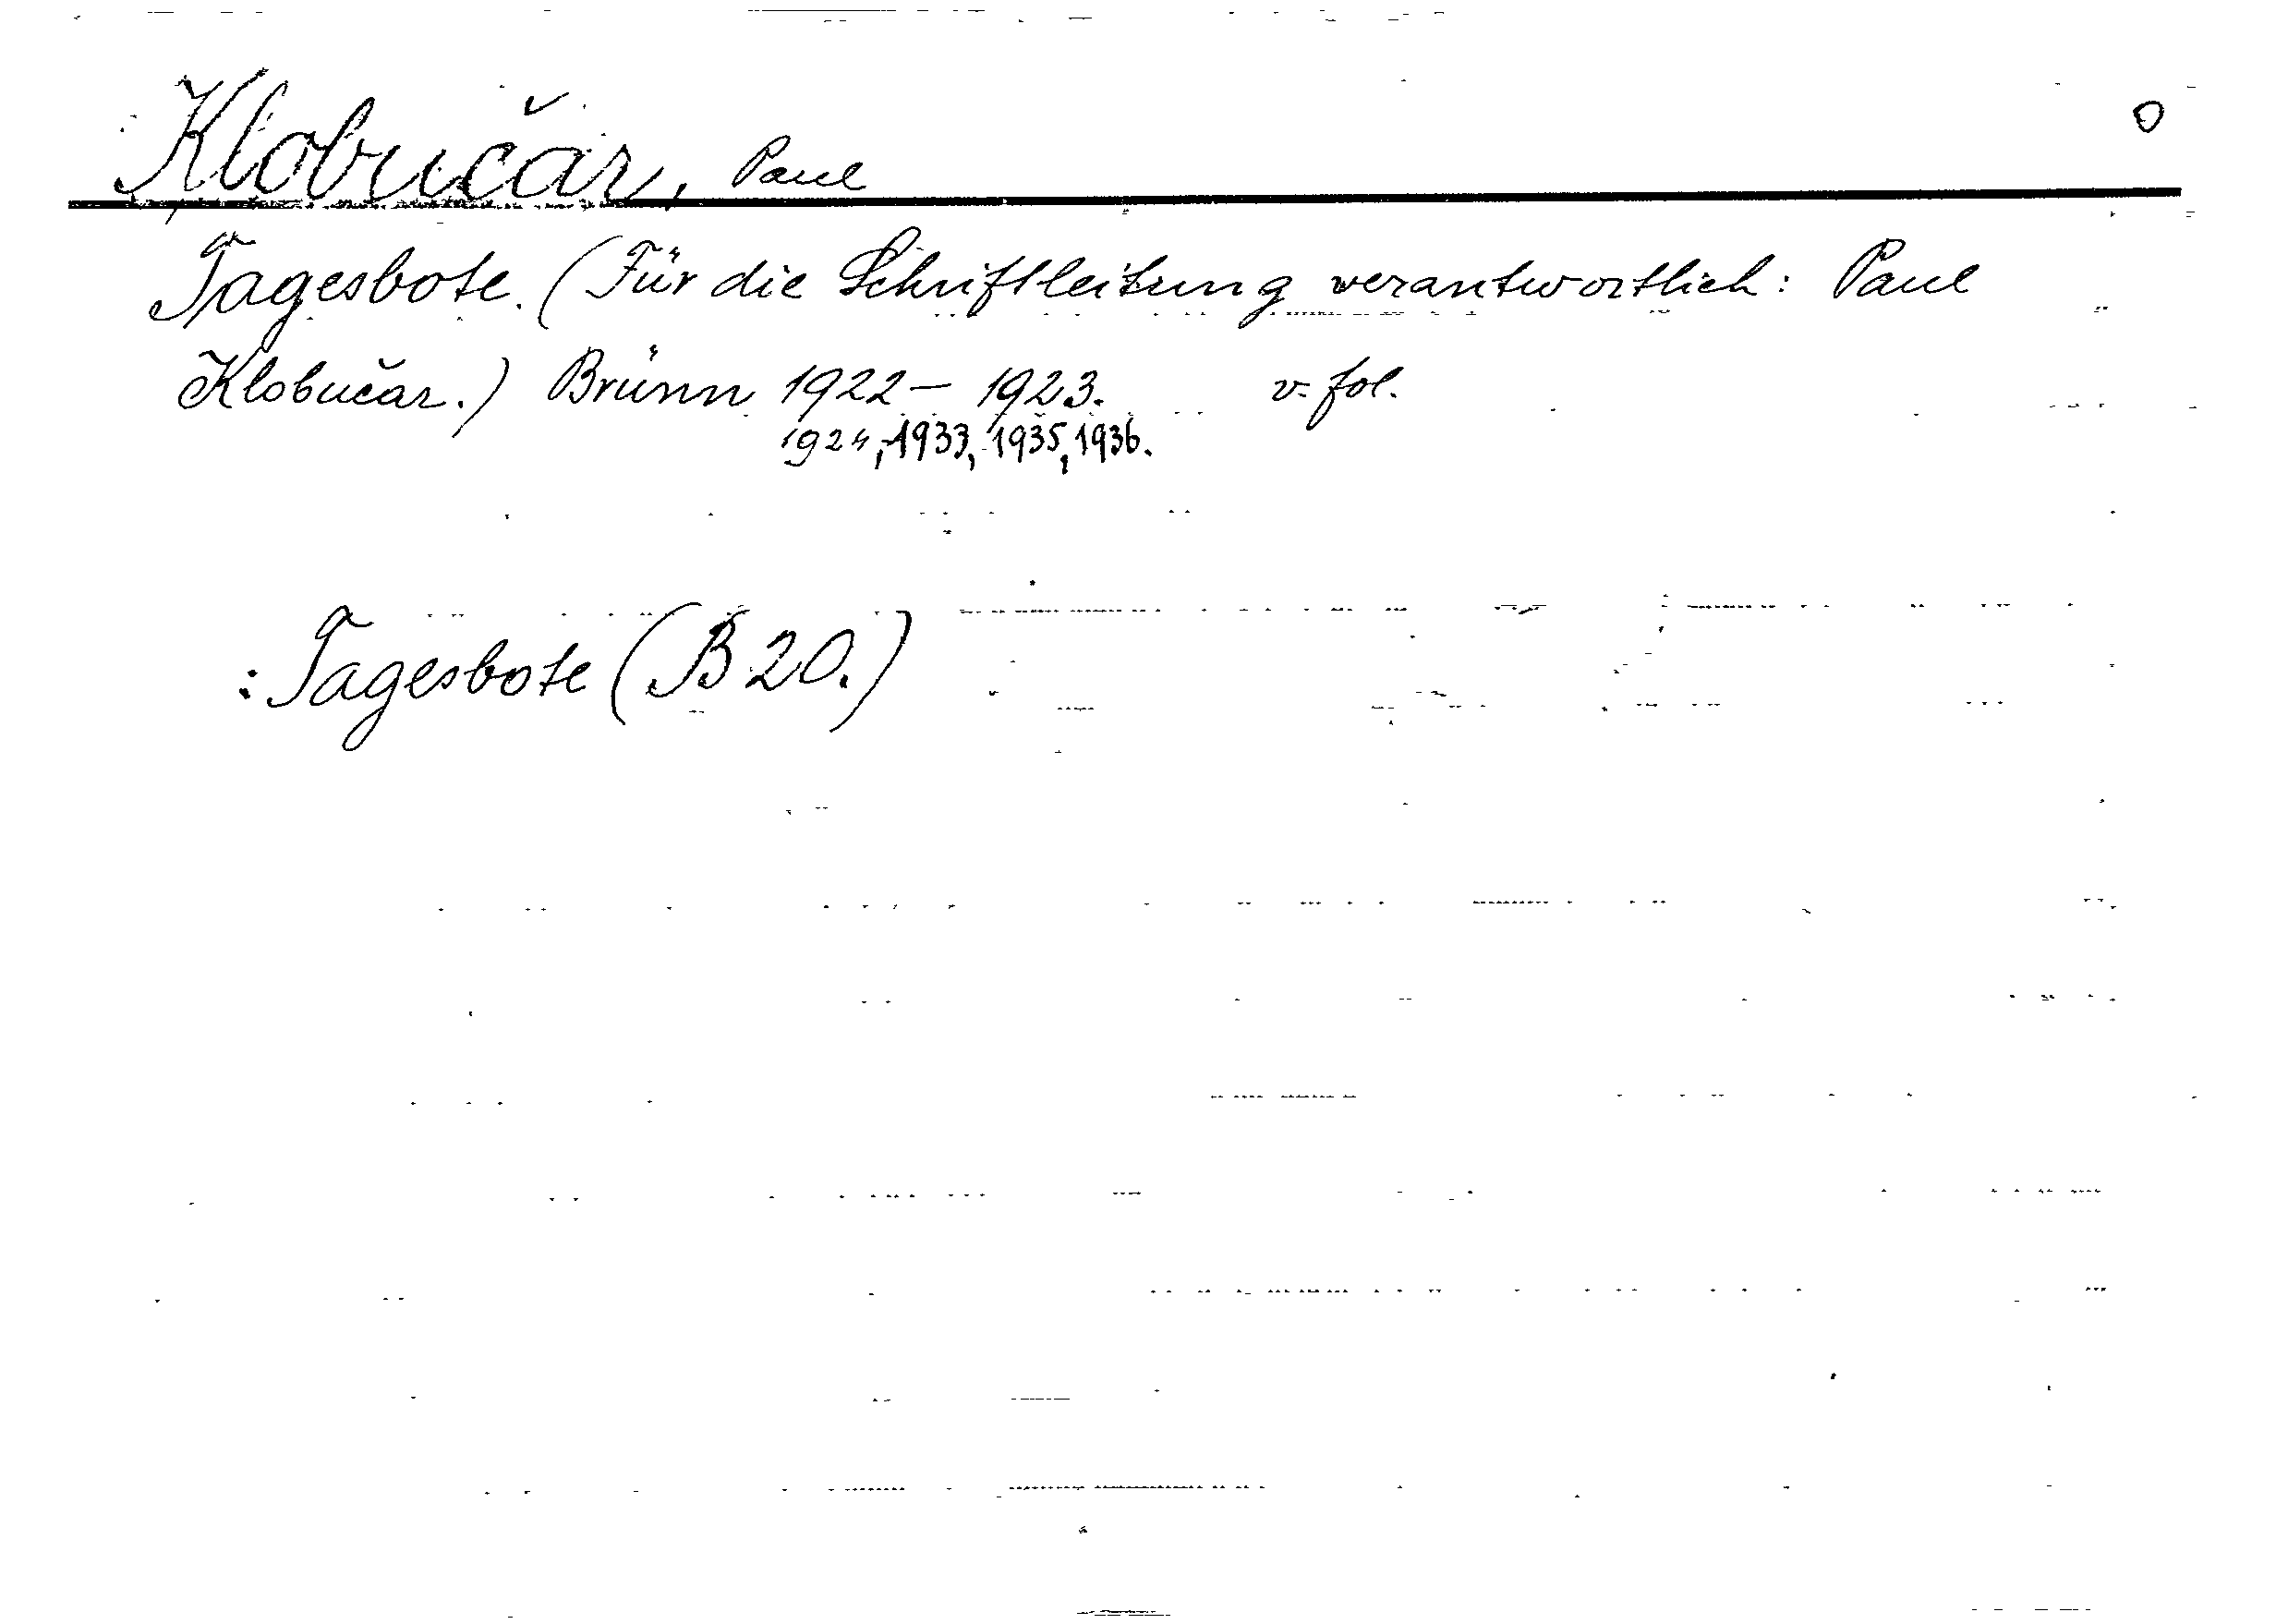 Klobučar, Paul
O
Tagesbote. (Für die Schriftleitung verantwortlich: Paul
Klobučar.) Brünn 1922 – 1923. v. fol.
1924, 1933, 1935, 1936.
: Tagesbote (B 20.)